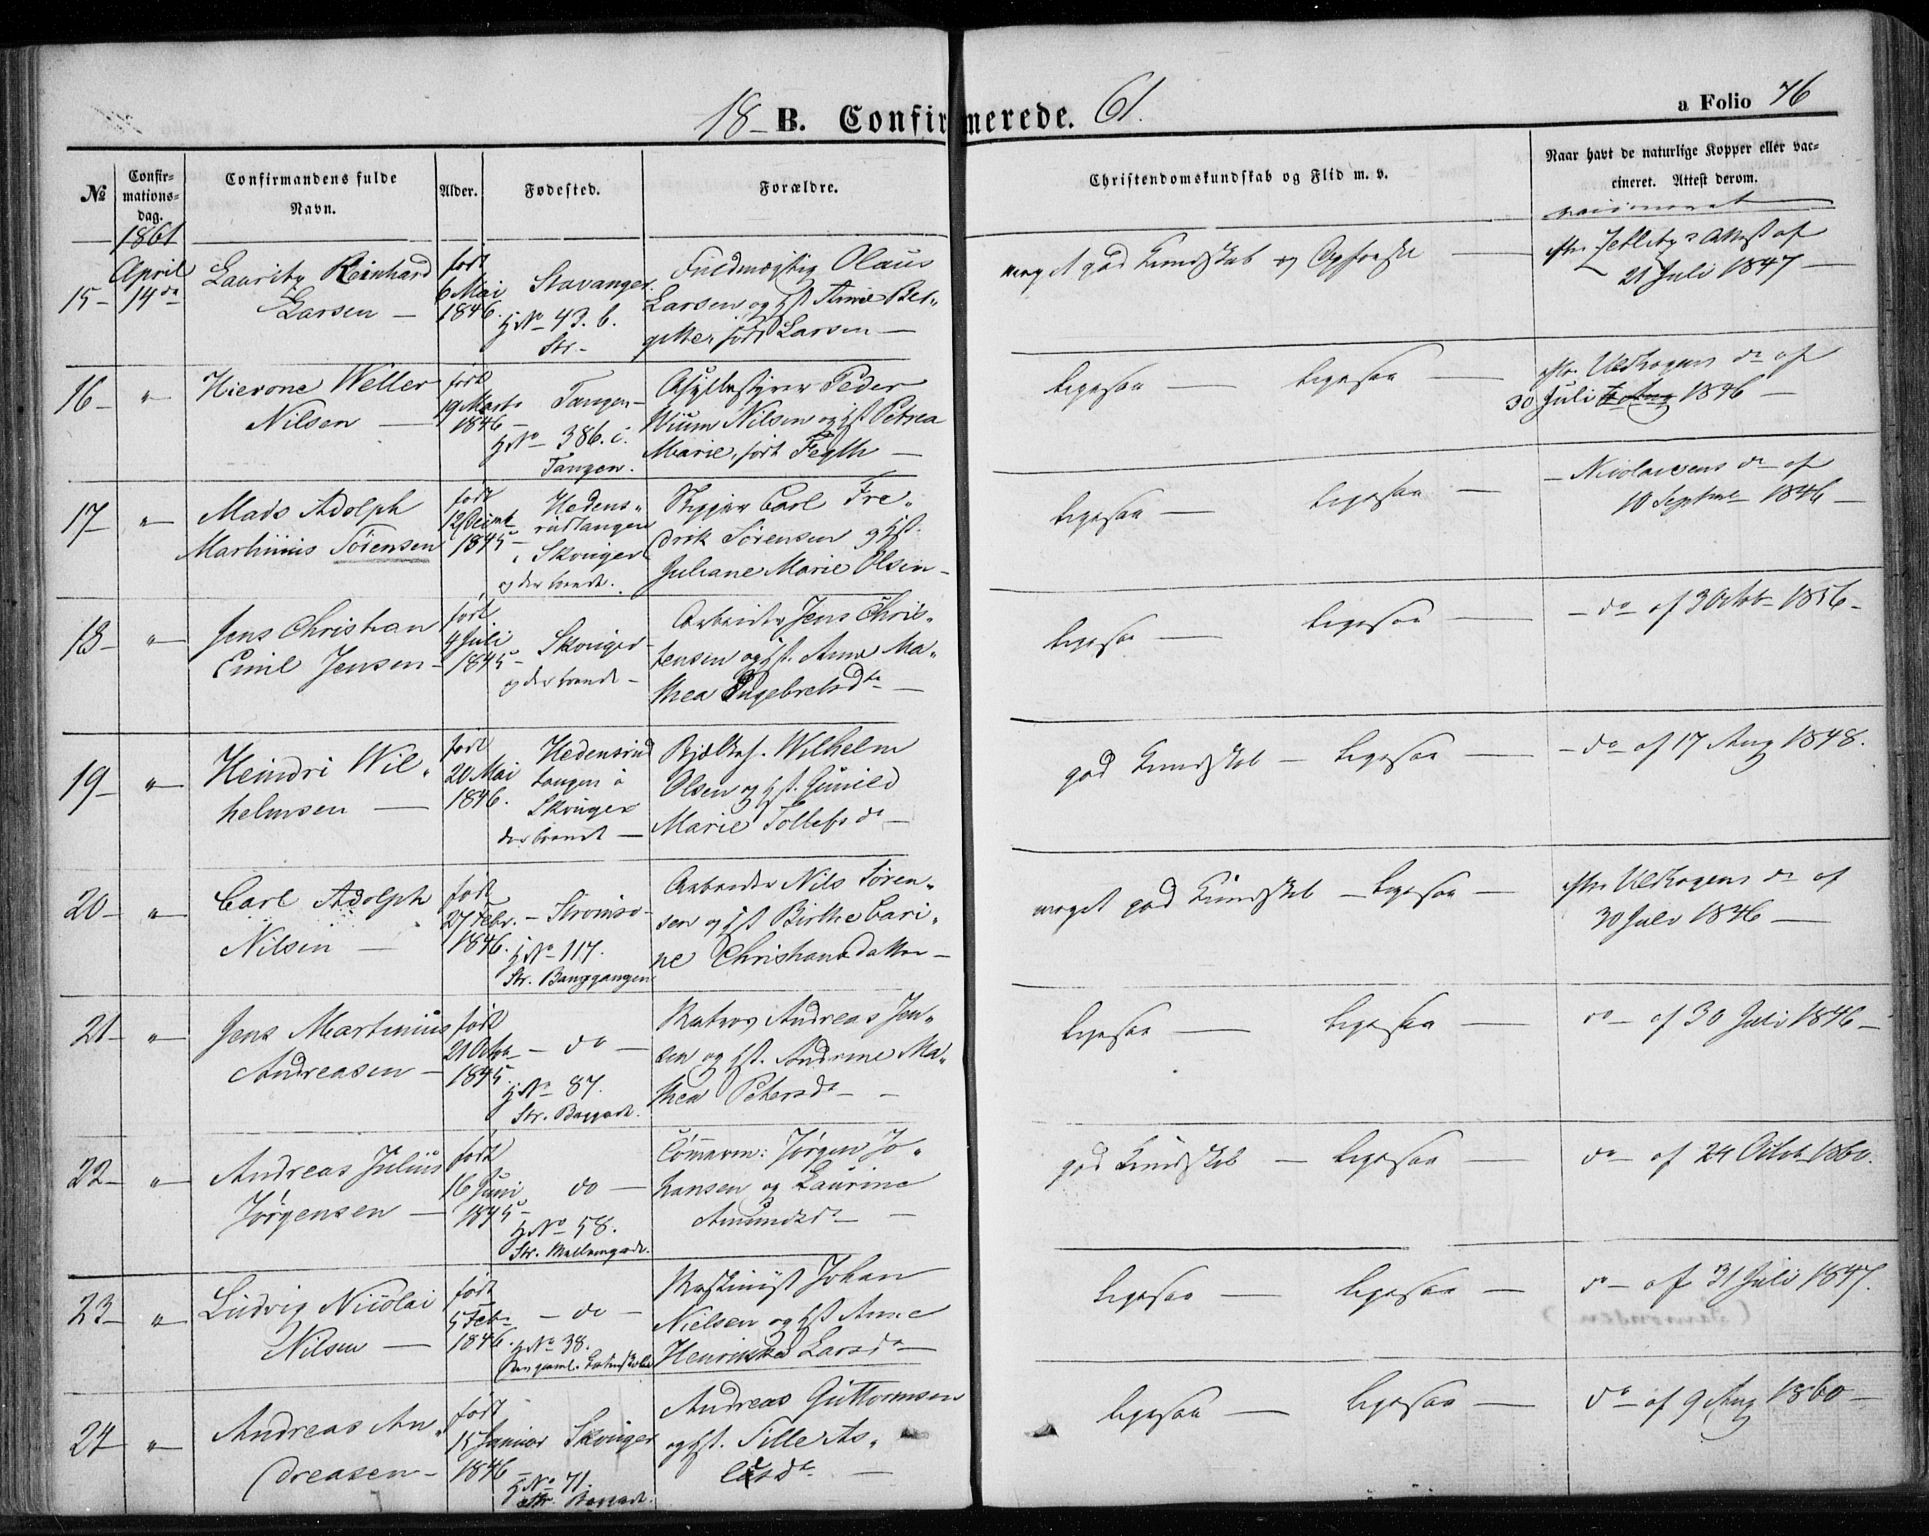 18- B. Confirmerede. 61.
a Folio 76
№
Confir-
mations-
dag.
Confirmandens fulde
Navn.
Alder.
Fødested.
Forældre.
Christendomskundskab og Flid m. v.
Naar havt de naturlige Kopper eller vac-
cineret. Attest derom.
1861
15- April 14de
Lauritz Reinhard
Larsen —
født
6 Mai
1846.
Stavanger.
H No 43. b.
Str.
Olaus
Larsen og Hst Anne Ber-
gitte, født Larsen —
meget god Kundskab og Opførsel —
Attest af
21 Juli 1847 —
16- "
Hierone Weller
Nilsen —
født
19 Marts
1846 —
Tangen-
H No 386. i.
Tangen.
Peder
Wium Nilsen og Hst Petrea
Marie, født Fegth —
ligesaa — ligesaa —
do af
30 Juli 1846 —
17- "
Mads Adolph
Martinius Sørensen
født
12 Decemb
1845 —
Hedens-
rudtangen
i Skouger
Carl Fre-
drik Sørensen og Hst.
Juliane Marie Olsen —
ligesaa — ligesaa —
— Nicolaisens do af
10 Septbr 1846 —
18- "
Jens Christian
Emil Jensen —
født
4 Juli
1845 —
Skouger
Arbeider Jens Chris-
tensen og Hst. Anne Ma-
thea Ingebretsdtr —
ligesaa — ligesaa —
— do af 3 Octob 1856 —
19- "
Heindri Wil-
helmsen —
født
20 Mai
1846.
Hedensrud
tangen i
Skouger
Wilhelm
Olsen og Hst. Gunild
Marie Tollefsdr —
god Kundskab — ligesaa —
— do af 17 Aug 1848.
20- "
Carl Adolph
Nilsen —
født
27 Febr.
1846.
— Strømsø —
H No 117.
Str. Banggangen
Arbeider Nils Søren-
sen og Hst Birthe Cari-
ne Christiansdatter —
meget god Kundskab — ligesaa —
do af
30 Juli 1846 —
21- "
Jens Martinius
Andreasen —
født
21 Octob
1845.
— do —
H No 87.
Str. Baggade.
Matros Andreas Jen-
sen og Hst. Andrine Ma-
thea Petersdr —
ligesaa — ligesaa —
do — af 30 Juli 1846 —
22- "
Andreas Julius
Jørgensen —
født
16 Juni
1845 —
do —
H No 58.
Str. Mellemgade.
Tømmerm: Jørgen Jo-
hansen og Laurine
Amundsdr —
god Kundskab — ligesaa —
do — af 24 Octob 1860.
23- "
Ludvig Nicolai
Nilsen —
født
5 Febr
1846.
— do —
H No 38.
Johan
Nielsen og Hst Anne
Henrikke Larsdr —
ligesaa — ligesaa —
do — af 31 Juli 1847.
24- "
Andreas An-
dreasen —
født
15 Januar
1846 —
Skouger
H No 71.
Str. Baggade.
Andreas Guttormsen
og Hst. Tille As-
lasdr —
ligesaa — ligesaa —
do — af 9 Aug 1860 —